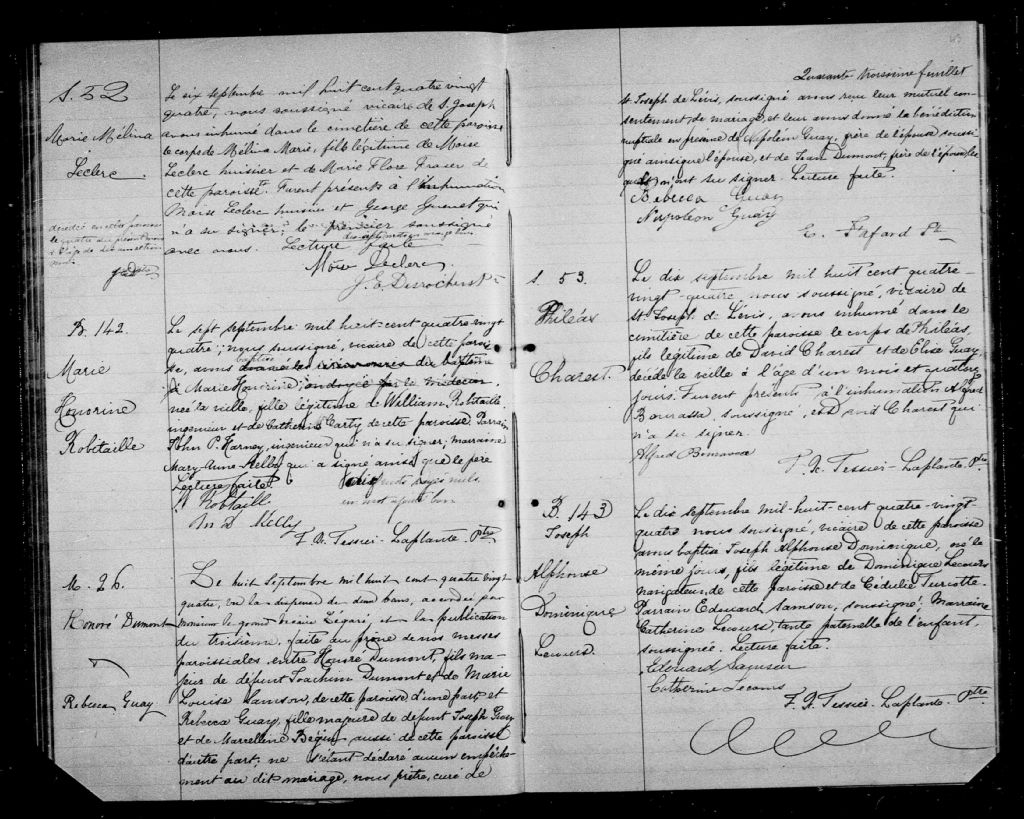 S. 52
Marie Mélina
Leclerc
Le six septembre mil huit cent quatre vingt
quatre, nous soussigné vicaire de S. Joseph
avons inhumé dans le cimetière de cette paroisse
le corps de Mélina Marie, fille légitime de Moise
Leclerc huissier et de Marie Flore Fraser de
cette paroisse. Furent présents à l'inhumation
Moise Leclerc huissier et George qui
n'a su signer; le premier soussigné
avec nous. Lecture faite
Moise Leclerc
J. E. Desrochers Ptre
B. 142.
Marie
Honorine
Robitaille
Le sept septembre mil huit-cent quatre vingt
quatre; nous soussigné, vicaire de cette parois-
se, avons baptisé du baptême
Marie Honorine; ondoyée par le médecin,
née la veille, fille légitime de William Robitaille
ingenieur et de Catherine Carty de cette paroisse. Parrain
John P. Karney, ingenieur qui n'a su signer; marraine
Mary-Anne Kelly qui a signé ainsi que le père
Lecture faite.
mots rayés nuls
un mot ajouté bon
W Robitaille
M A Kelly
F. X. Tessier-Laplante. Ptre
M. 26.
Honoré Dumont
Rebecca Guay
Le huit Septembre mil huit cent quatre vingt
quatre, vu la dispense de deux bans, accordée par
monsieur le grand vicaire Légaré, et la publication
du troisième, faite au prône de nos messes
paroissiales, entre Honoré Dumont, fils ma-
jeur de défunt Joachim Dumont et de Marie
Louise Samson, de cette paroisse d'une part, et
Rebecca Guay, fille majeure de défunt Joseph Guay
et de Marcelline Bégin, aussi de cette paroisse
d'autre part; ne s'étant déclaré aucun empêche-
ment au dit mariage, nous prêtre, curé de
43
Quarante troisième feuillet
St. Joseph de Lévis, soussigné avons reçu leur mutuel con-
sentement de mariage, et leur avons donné la bénédiction
nuptiale en présence de Napoléon Guay, frère de l'épouse soussi-
gné ainsi que l'épouse, et de Jean Dumont, frère de l'époux les-
quels n'ont su signer. Lecture faite.
Rebecca Guay
Napoleon Guay
E. Fafard Ptre
S. 53.
Philéas
Charest.
Le dix septembre mil huit cent quatre-
vingt-quatre, nous soussigné, vicaire de
St Joseph de Lévis, avons inhumé dans le
cimetière de cette paroisse le corps de Philéas,
fils légitime de David Charest et de Elise Guay,
décédé la veille à l'âge d'un mois et quatorze
jours. Furent présents à l'inhumation Alfred
Bourassa, soussigné, et David Charest qui
n'a su signer.
Alfred Bourassa
F. X. Tessier-Laplante. Ptre
B. 143
Joseph
Alphonse
Dominique
Lecours.
Le dix septembre mil-huit-cent quatre-vingt-
quatre nous soussigné, vicaire de cette paroisse
avons baptisé Joseph Alphonse Dominique, né le
même jour, fils légitime de Dominique Lecours
navigateur, de cette paroisse et de Cédulie Turcotte.
Parrain Edouard Samson, soussigné; Marraine
Catherine Lecours, tante paternelle de l'enfant,
soussignée. Lecture faite.
Edouard Samson
Catherine Lecours
F. X. Tessier-Laplante. Ptre